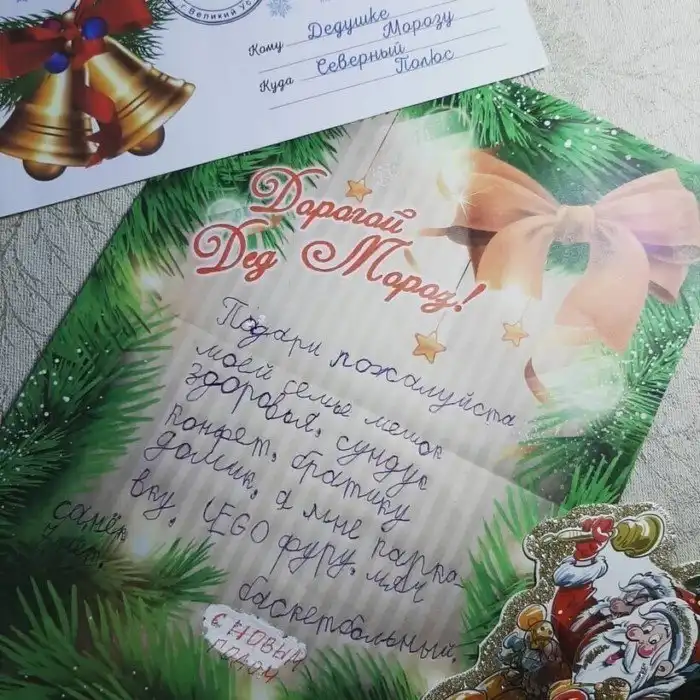 г. Великий Ус
Кому Дедушке
Морозу
Куда Северный
Полюс
Дорогой
Дед Мороз!
Подари пожалуйста
моей семье мешок
здоровья, сундук
конфет, братику
домик, а мне парко-
вку, LEGO фуру, мяч
баскетбольный.
санёк
7 лет!
С НОВЫМ
ГОДОМ